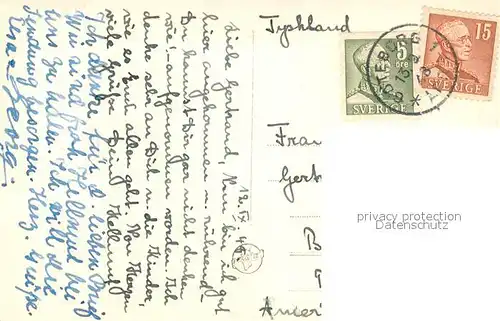 Tyskland
5
öre
SVERIGE
15
SVERIGE
GÖTEBORG
12. IX. 48
Liebe Gerhard, Nun bin ich gut
hier angekommen u. rührend
Du kannst Dir gar nicht denken
wie! aufgenommen worden. Ich
denke sehr an Dich u. die Kinder,
wie es Euch allen geht. Von Herzen
viele Grüße Dein Hellmut
Ich danke für d. lieben Brief
Wir sind froh Hellmut bei
uns zu haben. Ich will die
Sendung besorgen. Herz. Grüße
Georg.
Frau
Gert
privacy protection
Datenschutz